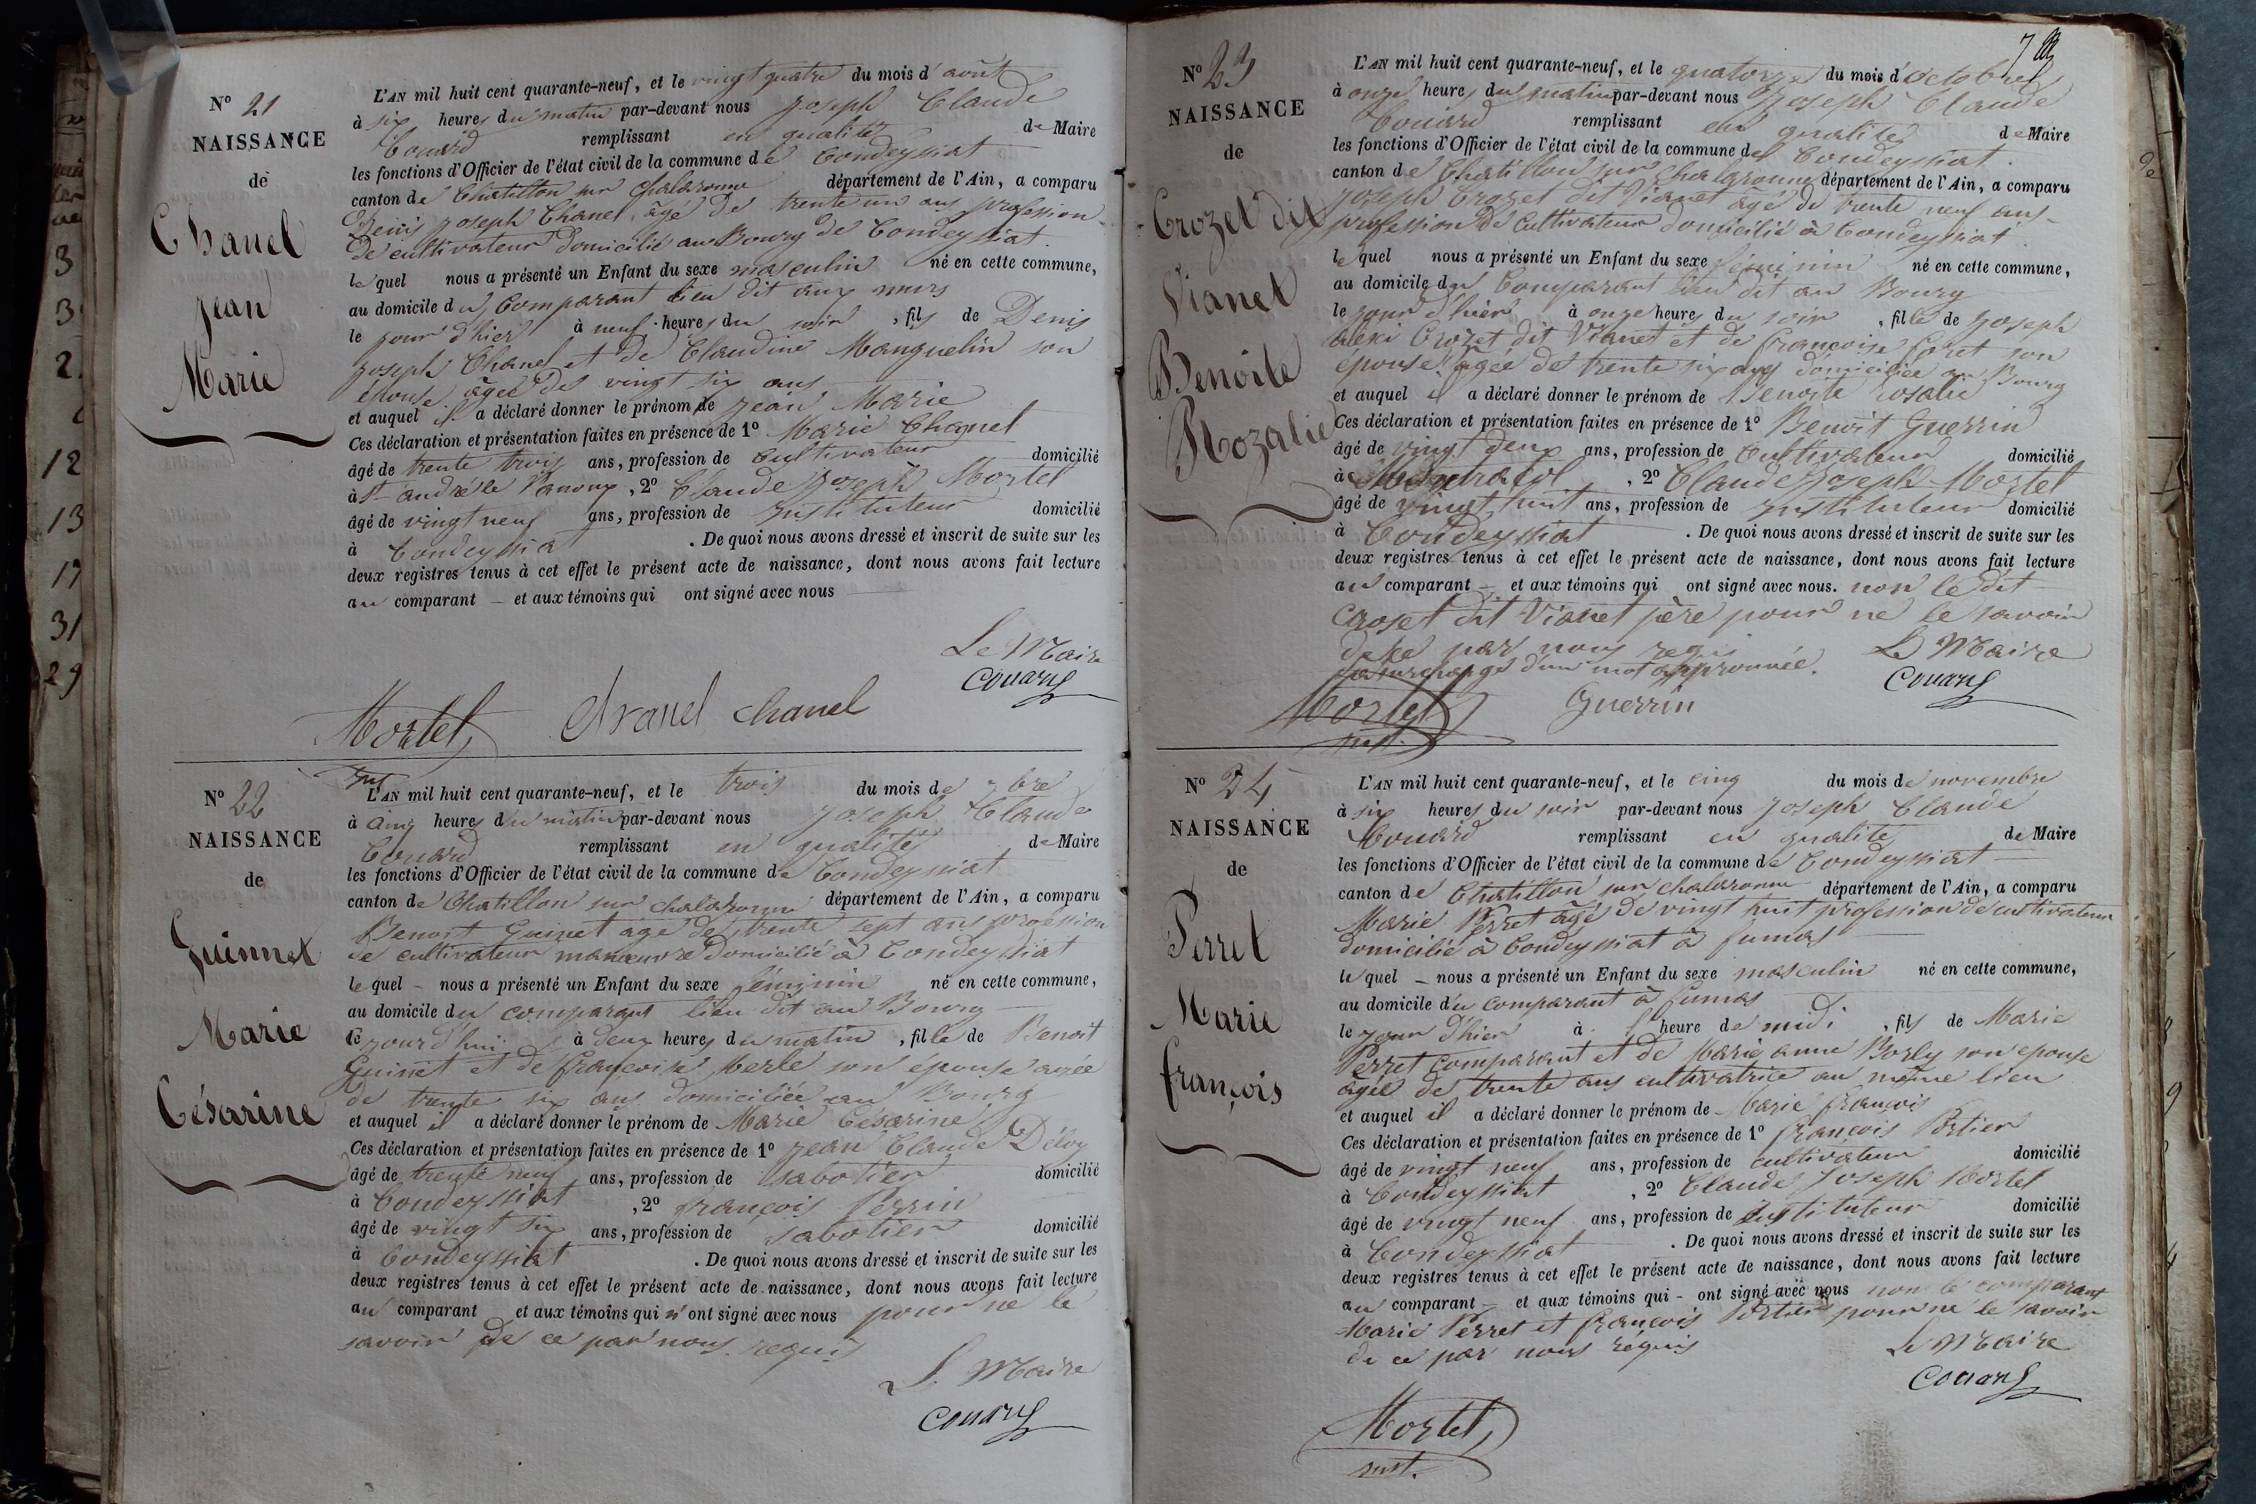 N° 21
NAISSANCE
de
Chanel
Jean
Marie
L'AN mil huit cent quarante-neuf, et le vingt quatre du mois d'août
à six heures du matin par-devant nous Joseph Claude
Couard remplissant en qualité de Maire
les fonctions d'Officier de l'état civil de la commune de Condeyssiat
canton de Chatillon sur Chalaronne département de l'Ain, a comparu
Denis Joseph Chanel, âgé de trente un ans profession
de cultivateur domicilié au Bourg de Condeyssiat.
lequel nous a présenté un Enfant du sexe masculin né en cette commune,
au domicile du Comparant lieu dit aux murs
le jour d'hier à neuf heures du soir, fils de Denis
Joseph Chanel et de Claudine Manguelin son
épouse âgée de vingt six ans
et auquel il a déclaré donner le prénom de Jean Marie
Ces déclaration et présentation faites en présence de 1° Marie Chanel
âgé de trente trois ans, profession de cultivateur domicilié
à St andré le Panoux, 2° Claude Joseph Mortel
âgé de vingt neuf ans, profession de Instituteur domicilié
à Condeyssiat. De quoi nous avons dressé et inscrit de suite sur les
deux registres tenus à cet effet le présent acte de naissance, dont nous avons fait lecture
au comparant — et aux témoins qui ont signé avec nous
Le Maire
Couard
Mortel Chanel chanel
inst
N° 22
NAISSANCE
de
Guinnet
Marie
Césarine
L'AN mil huit cent quarante-neuf, et le trois du mois de 7bre
à cinq heures du matin par-devant nous Joseph Claude
Couard remplissant en qualité de Maire
les fonctions d'Officier de l'état civil de la commune de Condeyssiat
canton de Chatillon sur chalaronne département de l'Ain, a comparu
Benoit Guinet âgé de trente sept ans profession
de cultivateur manœuvre domicilié à Condeyssiat
lequel – nous a présenté un Enfant du sexe féminin né en cette commune,
au domicile du comparant lieu dit au Bourg
le jourd'hui à deux heures du matin, fille de Benoit
Guinet et de françoise Merle son épouse agée
de trente six ans domiciliée au Bourg
et auquel il a déclaré donner le prénom de Marie Césarine
Ces déclaration et présentation faites en présence de 1° Jean Claude Déloy
âgé de trente neuf ans, profession de sabotier domicilié
à Condeyssiat, 2° françois Perrin
âgé de vingt six ans, profession de sabotier domicilié
à Condeyssiat. De quoi nous avons dressé et inscrit de suite sur les
deux registres tenus à cet effet le présent acte de naissance, dont nous avons fait lecture
au comparant et aux témoins qui n'ont signé avec nous pour ne le
savoir de ce par nous requis
Le Maire
Couard
N° 23
NAISSANCE
de
Crozet dit
Vianet
Benoite
Rozalie
L'AN mil huit cent quarante-neuf, et le quatorze du mois d'octobre
à onze heures du matin par-devant nous Joseph Claude
Couard remplissant en qualité de Maire
les fonctions d'Officier de l'état civil de la commune de Condeyssiat.
canton de Chatillon sur Chalaronne département de l'Ain, a comparu
Joseph Crozet dit Vianet âgé de trente neuf ans
profession de Cultivateur domicilié à Condeyssiat.
lequel nous a présenté un Enfant du sexe féminin né en cette commune,
au domicile du Comparant lieu dit au Bourg
le jour d'hier à onze heures du soir, fille de Joseph
Crozet dit Vianet et de françoise foret son
épouse âgée de trente six ans domiciliée au Bourg
et auquel il a déclaré donner le prénom de Benoite rosalie
Ces déclaration et présentation faites en présence de 1° Benoit Guerrin
âgé de vingt deux ans, profession de Cultivateur domicilié
à, 2° Claude Joseph Mortel
âgé de vingt huit ans, profession de Instituteur domicilié
à Condeyssiat. De quoi nous avons dressé et inscrit de suite sur les
deux registres tenus à cet effet le présent acte de naissance, dont nous avons fait lecture
au comparant — et aux témoins qui ont signé avec nous. non le dit
Croset dit Vianet père pour ne le savoir
de ce par nous requis
surchargé d'un mot approuvée.
Le Maire
Couard
Mortel Guerrin
inst.
N° 24
NAISSANCE
de
Perret
Marie
françois
L'AN mil huit cent quarante-neuf, et le cinq du mois de novembre
à six heures du soir par-devant nous Joseph Claude
Couard remplissant en qualité de Maire
les fonctions d'Officier de l'état civil de la commune de Condeyssiat
canton de Chatillon sur chalaronne département de l'Ain, a comparu
Marie Perret âgé de vingt huit profession de cultivateur
domicilié à Condeyssiat à fumas
lequel – nous a présenté un Enfant du sexe masculin né en cette commune,
au domicile du comparant à fumas
le jour d'hier à l'heure de midi, fils de Marie
Perret comparant et de Marie anne Borly son epouse
âgée de trente ans cultivatrice au même lieu
et auquel il a déclaré donner le prénom de Marie françois
Ces déclaration et présentation faites en présence de 1° françois Portier
âgé de vingt neuf ans, profession de cultivateur domicilié
à Condeyssiat, 2° Claude Joseph Mortel
âgé de vingt neuf ans, profession de Instituteur domicilié
à Condeyssiat. De quoi nous avons dressé et inscrit de suite sur les
deux registres tenus à cet effet le présent acte de naissance, dont nous avons fait lecture
au comparant – et aux témoins qui – ont signé avec nous non le comparant
Marie Perret et françois Portier pour ne le savoir
de ce par nous réquis
Le Maire
Couard
Mortel
inst.